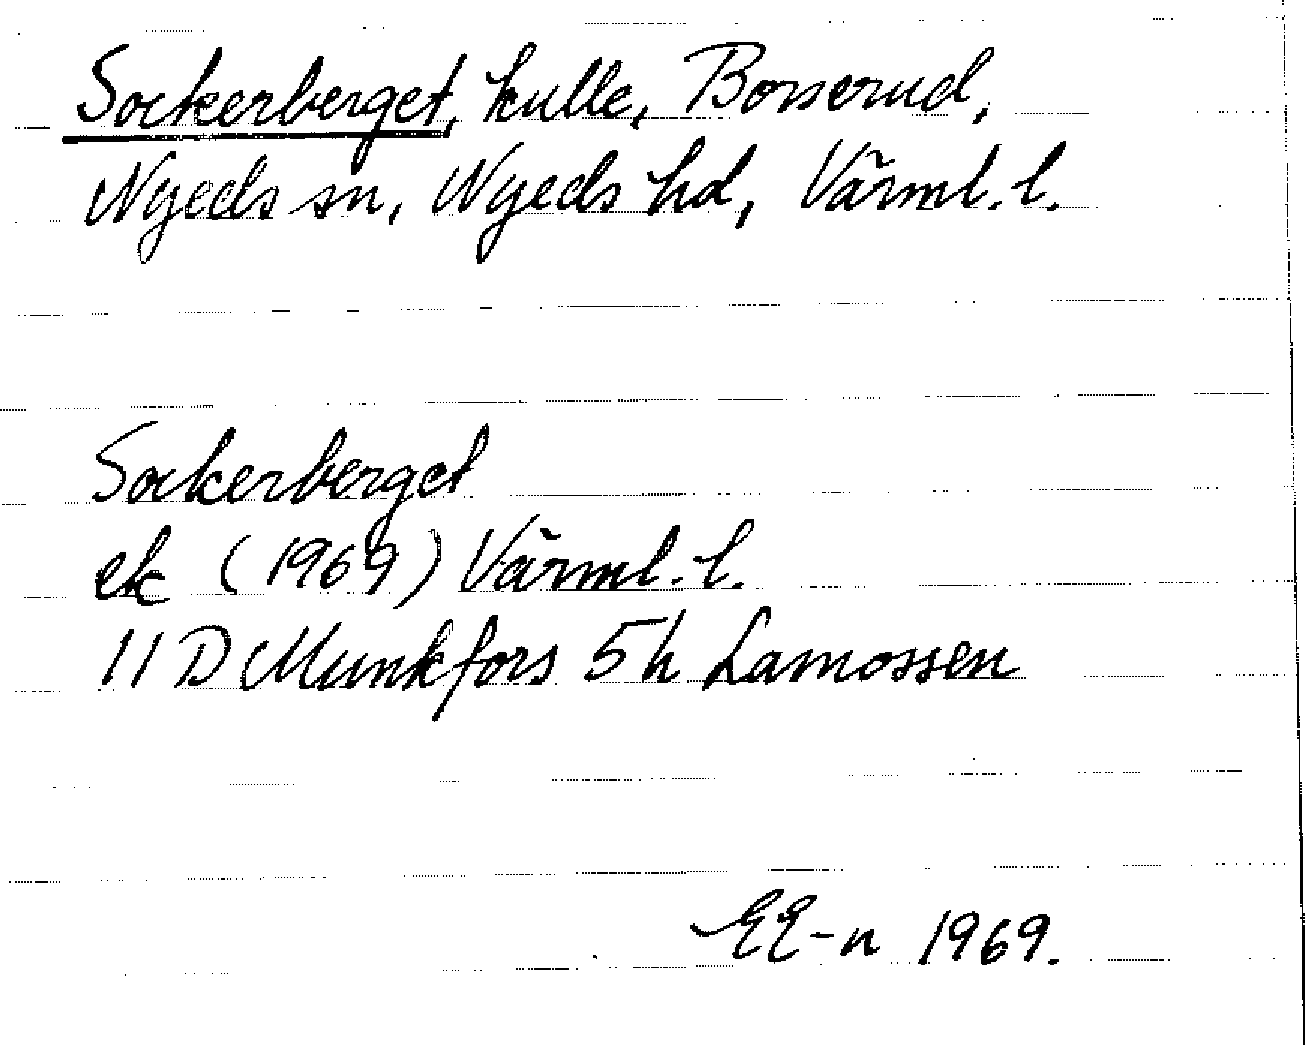 Sockerberget, kulle, Bosserud,
Nyeds sn, Nyeds hd, Värml. l.
Sockerberget
ek (1969) Värml. l.
11 D Munkfors 5h Lamossen
EE-n 1969.